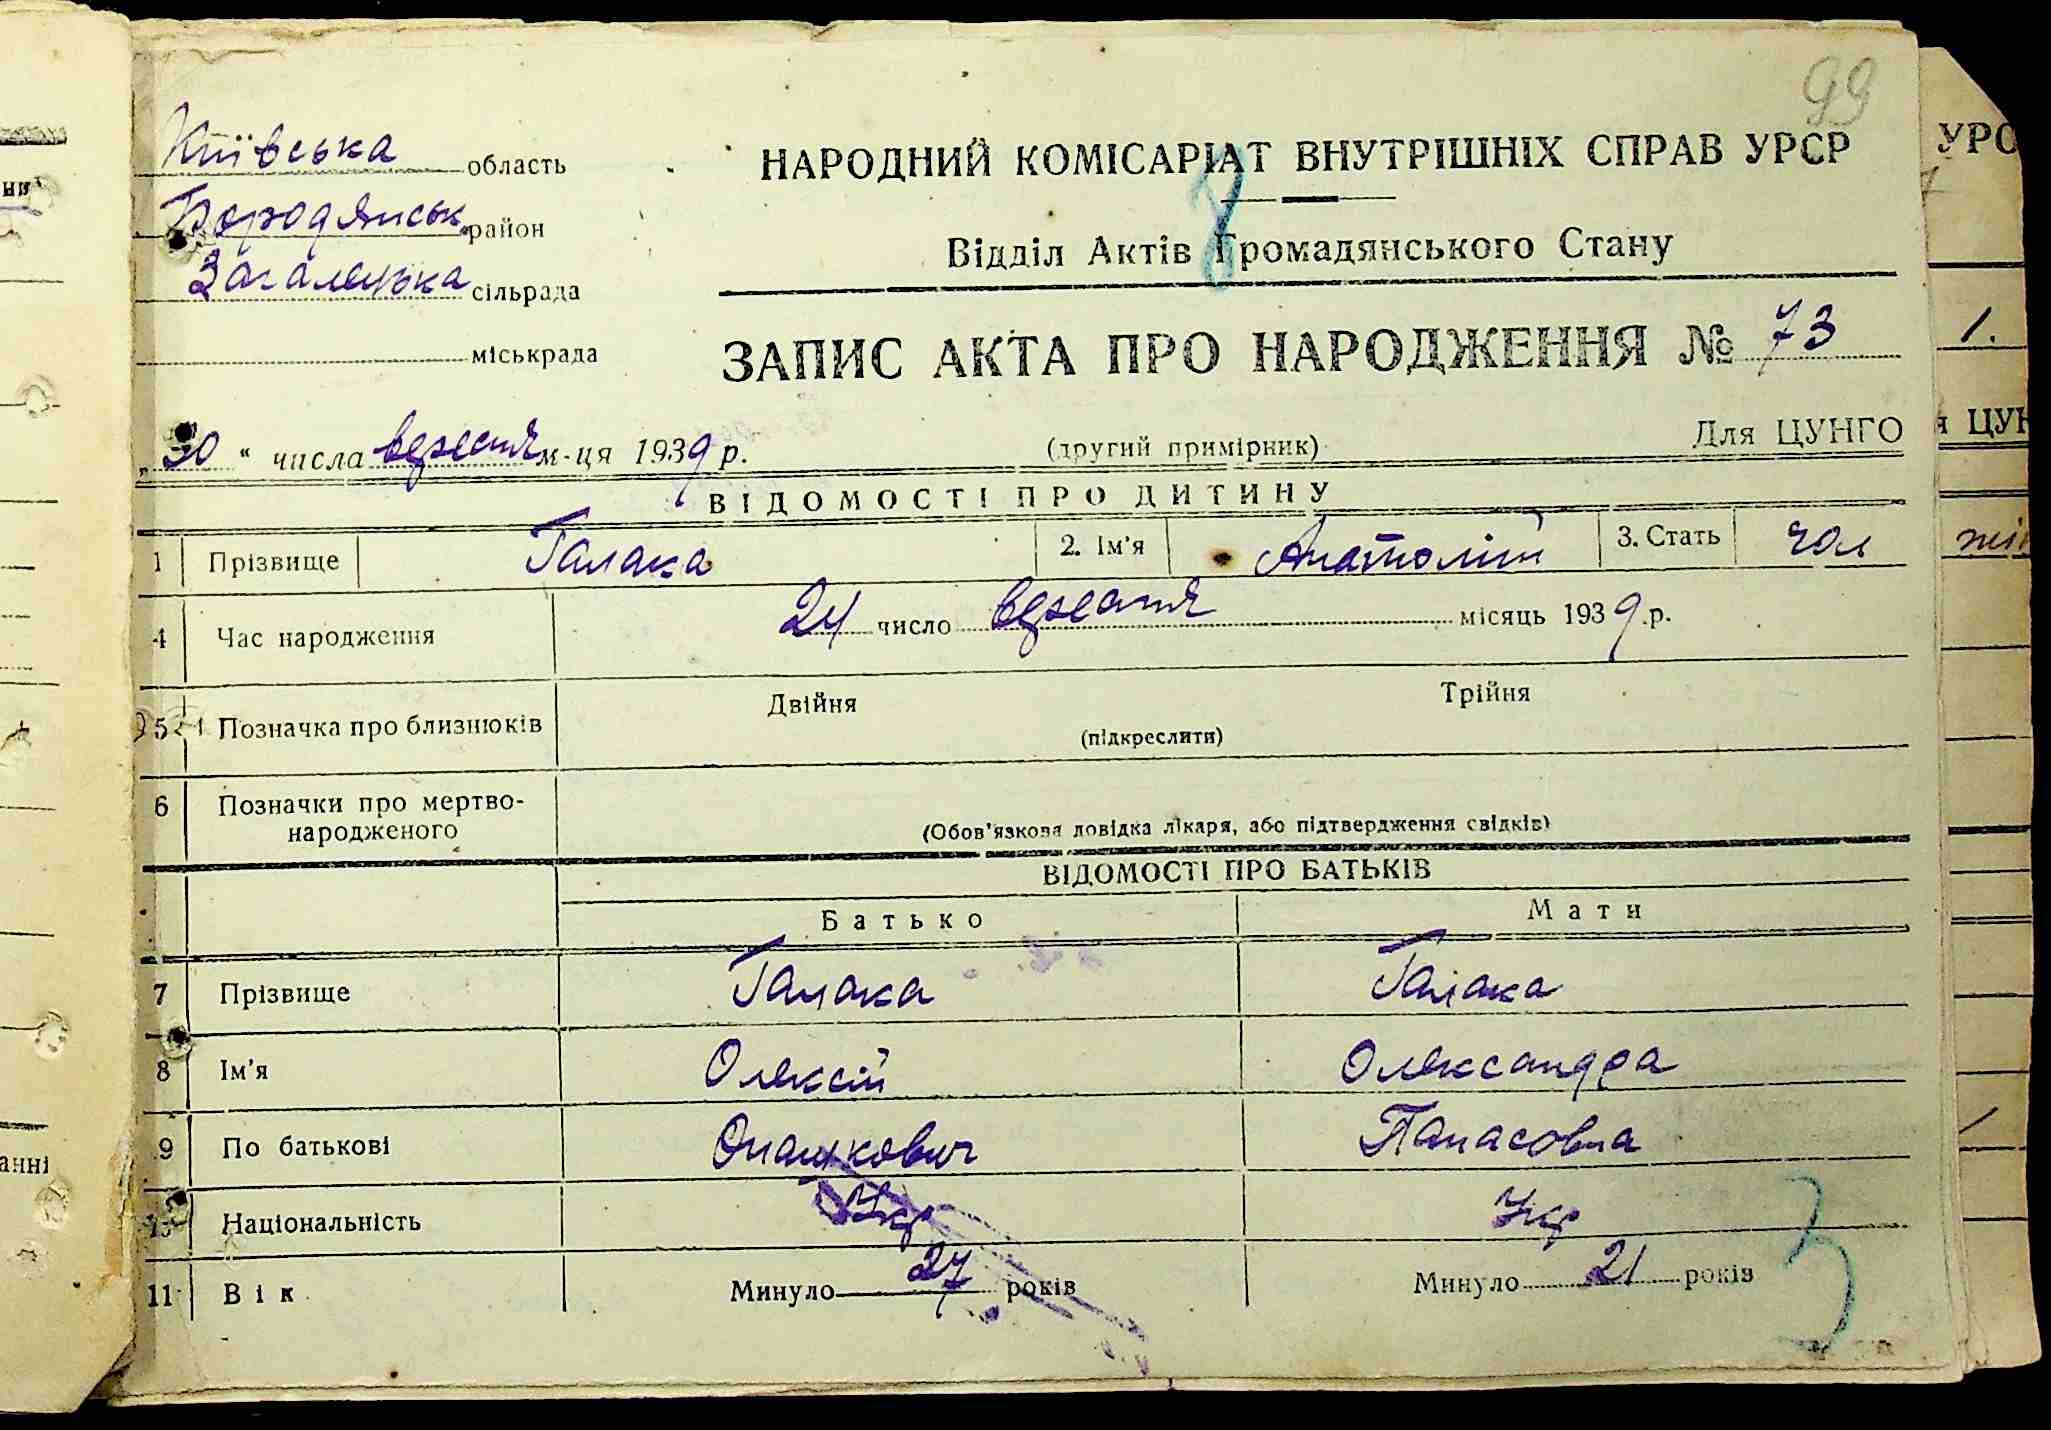 99
Київська область
Бородянськ. район
Загалецька сільрада
міськрада
НАРОДНИЙ КОМІСАРІАТ ВНУТРІШНІХ СПРАВ УРСР
8
Відділ Актів Громадянського Стану
ЗАПИС АКТА ПРО НАРОДЖЕННЯ № 73
„30“ числа вересня м-ця 1939 р.
(другий примірник)
Для ЦУНГО
ВІДОМОСТІ ПРО ДИТИНУ
1 Прізвище Галака 2. Ім'я Анатолій 3. Стать чол
4 Час народження 24 число вересня місяць 1939 р.
5 Позначка про близнюків Двійня Трійня
(підкреслити)
6 Позначки про мертво-
народженого
(Обов'язкова довідка лікаря, або підтвердження свідків)
ВІДОМОСТІ ПРО БАТЬКІВ
Батько Мати
7 Прізвище Галака Галака
8 Ім'я Олексій Олександра
9 По батькові Панасовна
Національність Укр Укр
11 Вік Минуло 27 років Минуло 21 років
3
УРС
1.
ЦУН